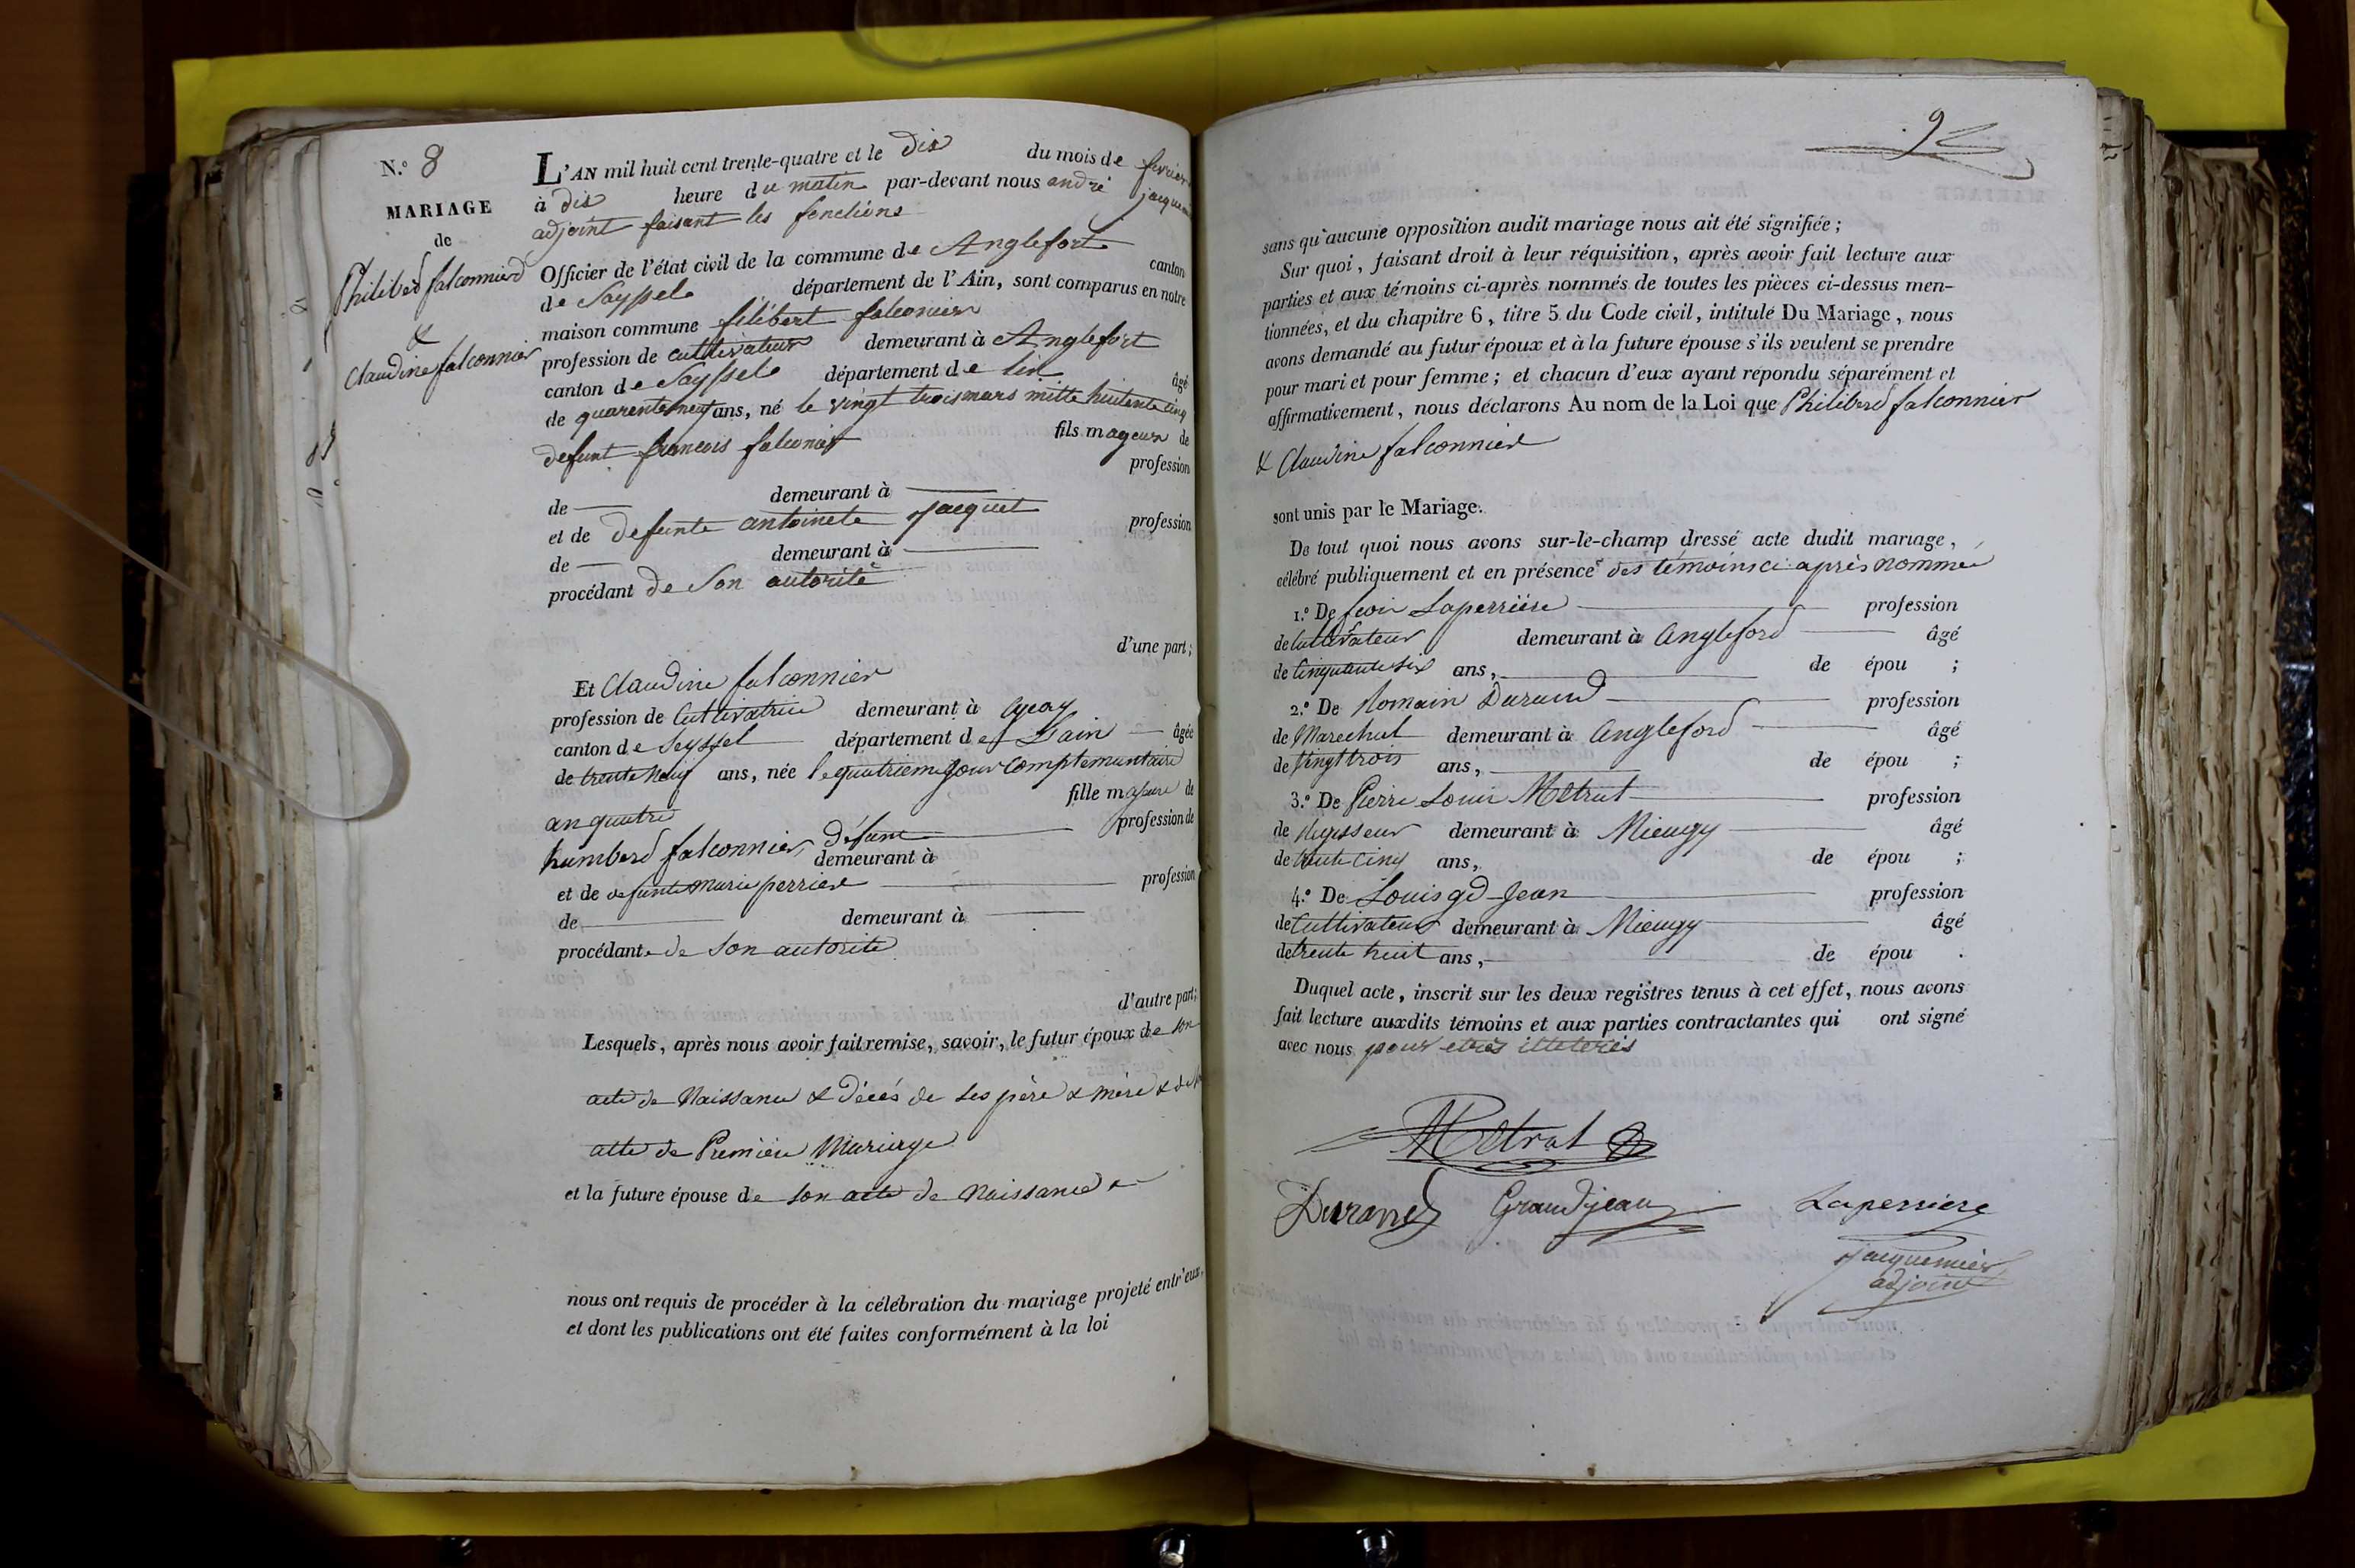 N.º 8
MARIAGE
de
Philiberd falconnierd
&
Claudine falconnier
L'AN mil huit cent trente-quatre et le dix du mois de fevrier
à dix heure du matin par-devant nous andré jacquemier
adjoint faisant les fonctions
Officier de l'état civil de la commune de Anglefort canton
de Sayssele département de l'Ain, sont comparus en notre
maison commune filibert falconier
profession de cultivateur demeurant à Anglefort
canton de Sayssele département de lin âgé
de quarente neuf ans, né le vingt trois mars mille huitente cinq
fils mageur de
defunt francois falconier profession
de demeurant à
et de defunte antoinete jacquet profession
de demeurant à
procédant de son autorité
d'une part;
Et Claudine falconnier
profession de Cultivatrice demeurant à
canton de Seyssel département de Lain âgée
de trente neuf ans, née le quatrieme jour Complémentaire
an quatre fille majeure de
humberd falconnier défunt profession de
demeurant à
et de defunte Marie perrier profession
de demeurant à
procédant de son autorité
d'autre part;
Lesquels, après nous avoir fait remise, savoir, le futur époux de son
acte de Naissance & décés de ses père & mère &
atte de Premiere Mariage
et la future épouse de son acte de Naissance
nous ont requis de procéder à la célébration du mariage projeté entr'eux,
et dont les publications ont été faites conformément à la loi
9
sans qu'aucune opposition audit mariage nous ait été signifiée;
Sur quoi, faisant droit à leur réquisition, après avoir fait lecture aux
parties et aux témoins ci-après nommés de toutes les pièces ci-dessus men-
tionnées, et du chapitre 6, titre 5 du Code civil, intitulé Du Mariage, nous
avons demandé au futur époux et à la future épouse s'ils veulent se prendre
pour mari et pour femme; et chacun d'eux ayant répondu séparément et
affirmativement, nous déclarons Au nom de la Loi que Philiberd falconnier
& Claudine falconnier
sont unis par le Mariage.
De tout quoi nous avons sur-le-champ dressé acte dudit mariage,
célébré publiquement et en présence des témoins ci après nommé
1.º De Laperriere profession
de Cultivateur demeurant à Angleford âgé
de Cinquante six ans, de épou ;
2.º De Romain Durand profession
de Marechal demeurant à Angleford âgé
de Vingt trois ans, de épou ;
3.º De Pierre Louis Métrat profession
de demeurant à Mieugy âgé
de trente cinq ans, de épou ;
4.º De Louis gd-Jean profession
de Cultivateur demeurant à Mieugy âgé
de trente huit ans, de épou .
Duquel acte, inscrit sur les deux registres tenus à cet effet, nous avons
fait lecture auxdits témoins et aux parties contractantes qui ont signé
avec nous pour etres illeterés
Métrat
Durand Grandjean Laperriere
Jacquemier
adjoint